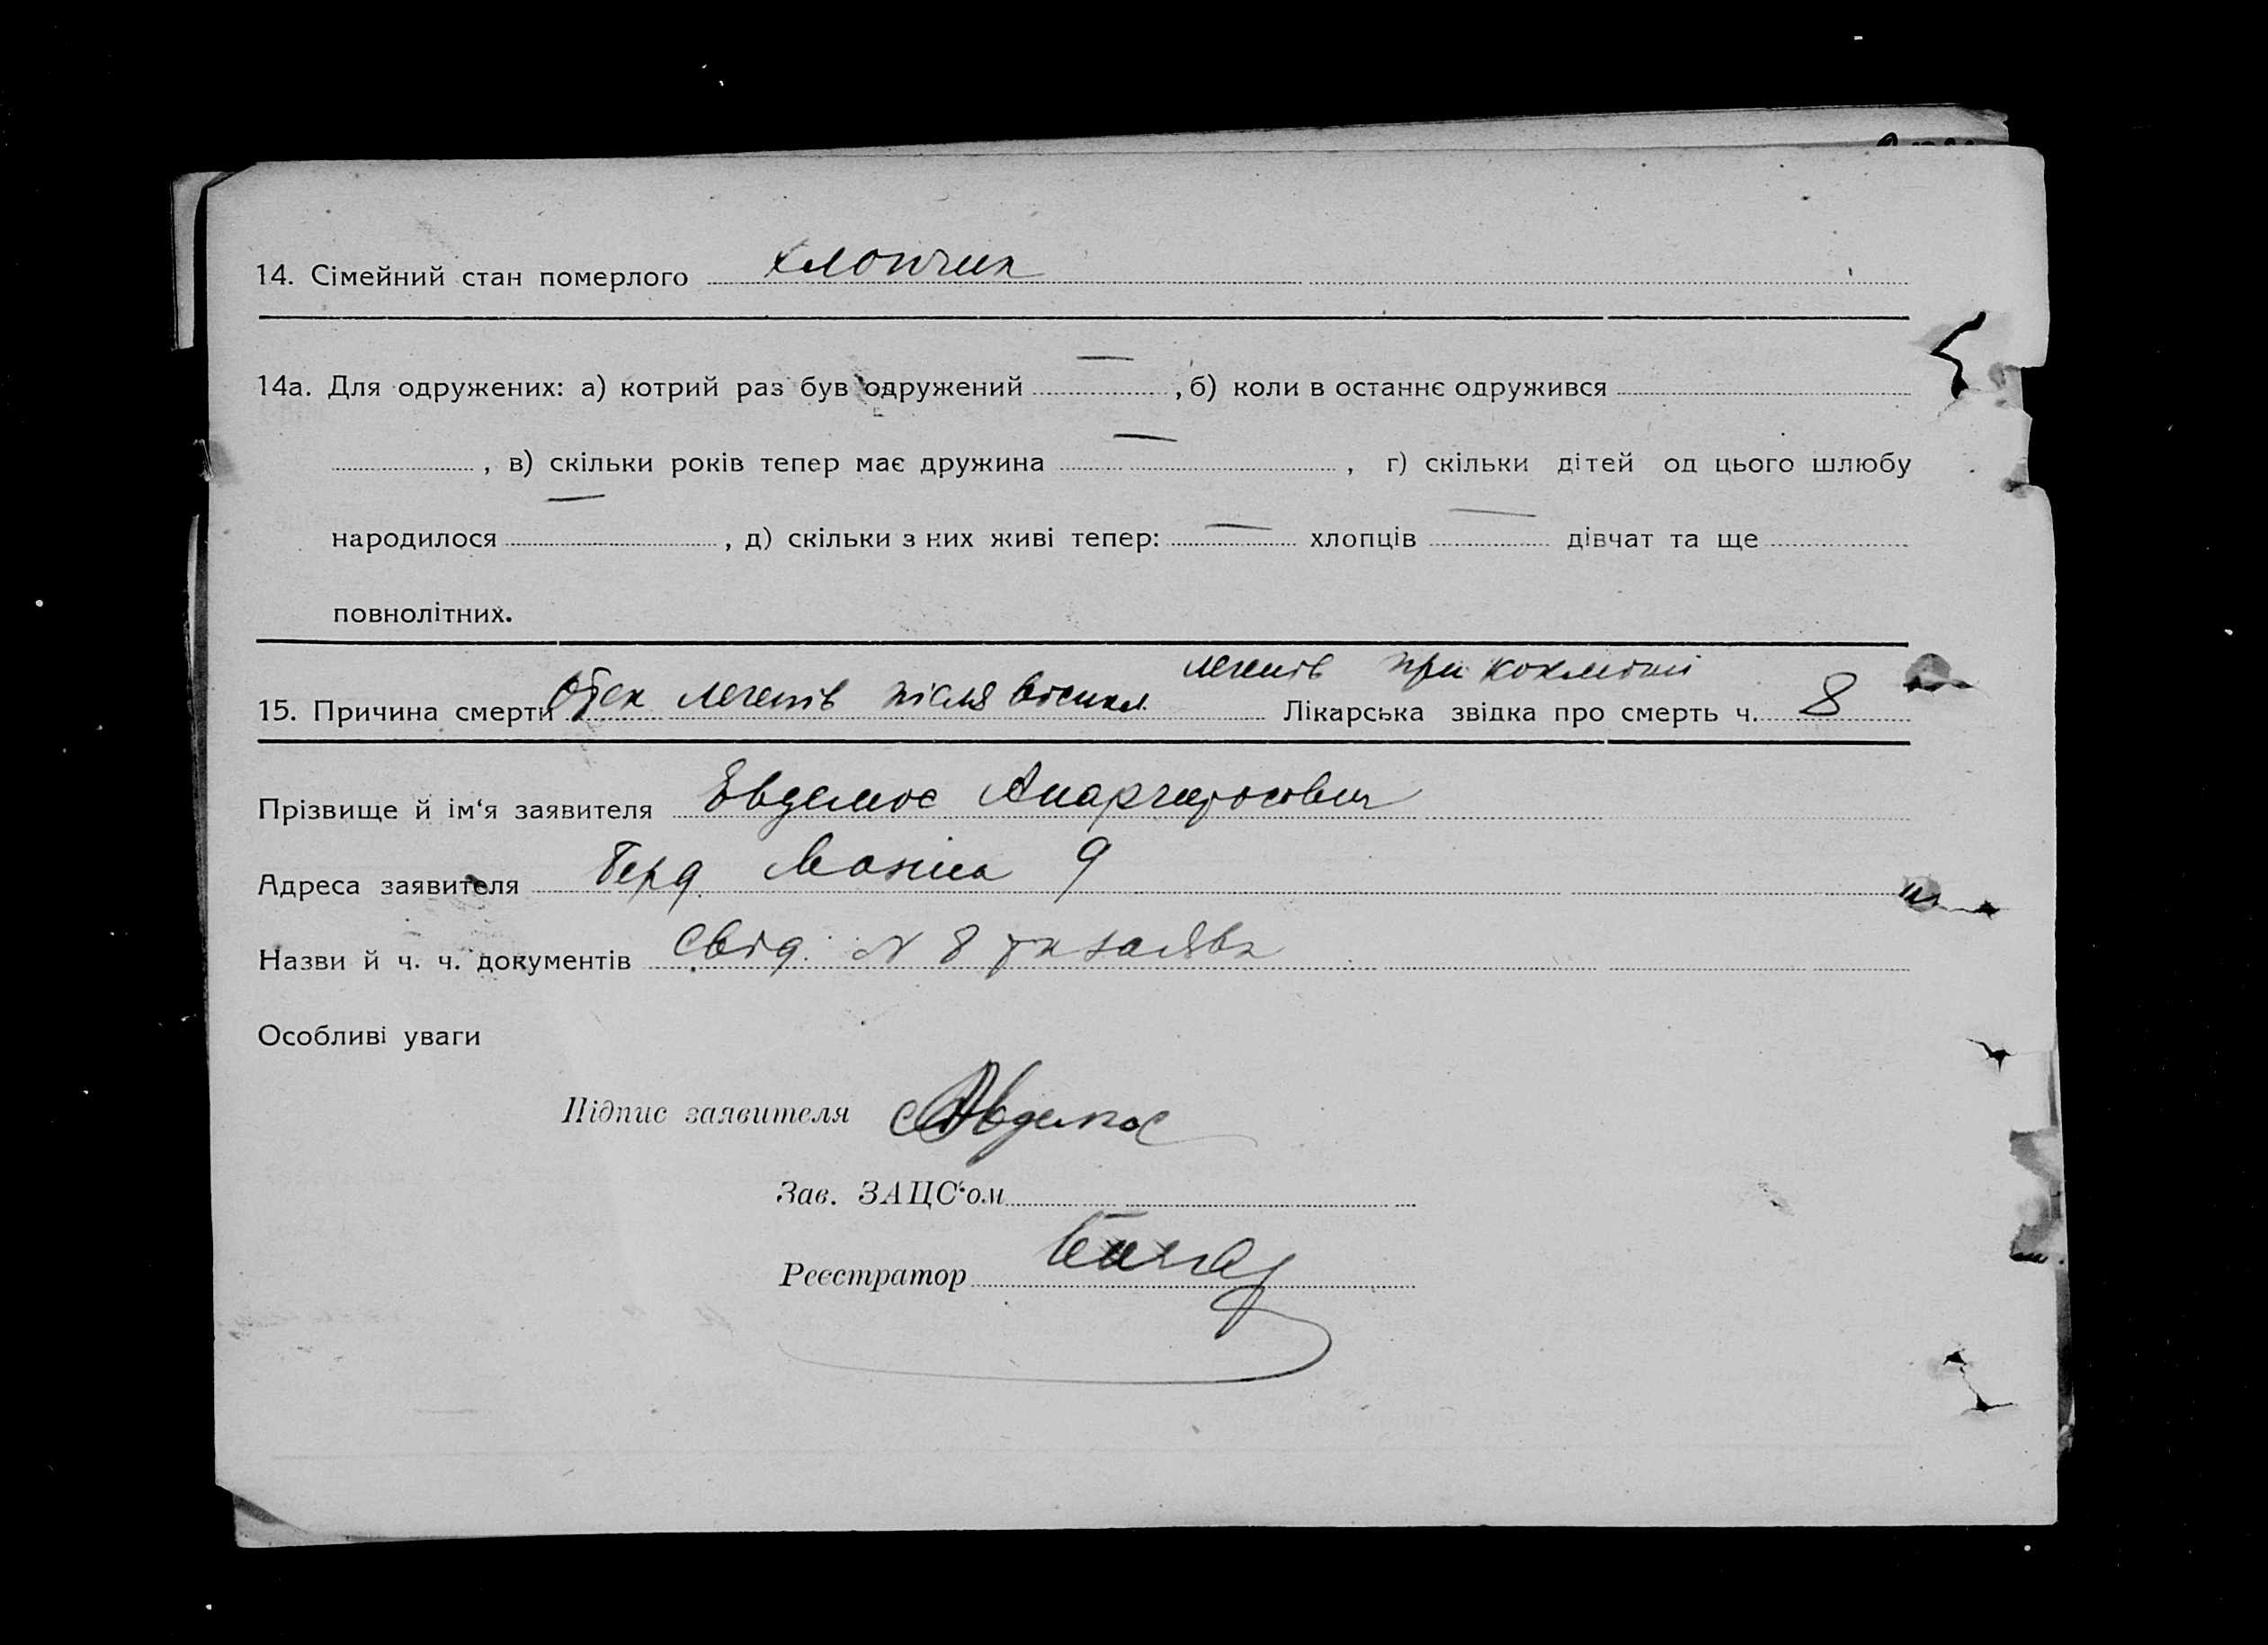 14. Сімейний стан померлого хлопчик
14а. Для одружених: а) котрий раз був одружений — , б) коли в останнє одружився
, в) скільки років тепер має дружина — , г) скільки дітей од цього шлюбу
народилося — , д) скільки з них живі тепер: — хлопців — дівчат та ще
повнолітних.
легенів при коклюші
15. Причина смерти Отек легенів після Лікарська звідка про смерть ч. 8
Прізвище й ім‘я заявителя Евдемос Анаргиросович
Адреса заявителя Берд. 9
Назви й ч. ч. документів Свід. N 8 та заява
Особливі уваги
Підпис заявителя Авдемос
Зав. ЗАЦС‘ом
Реєстратор